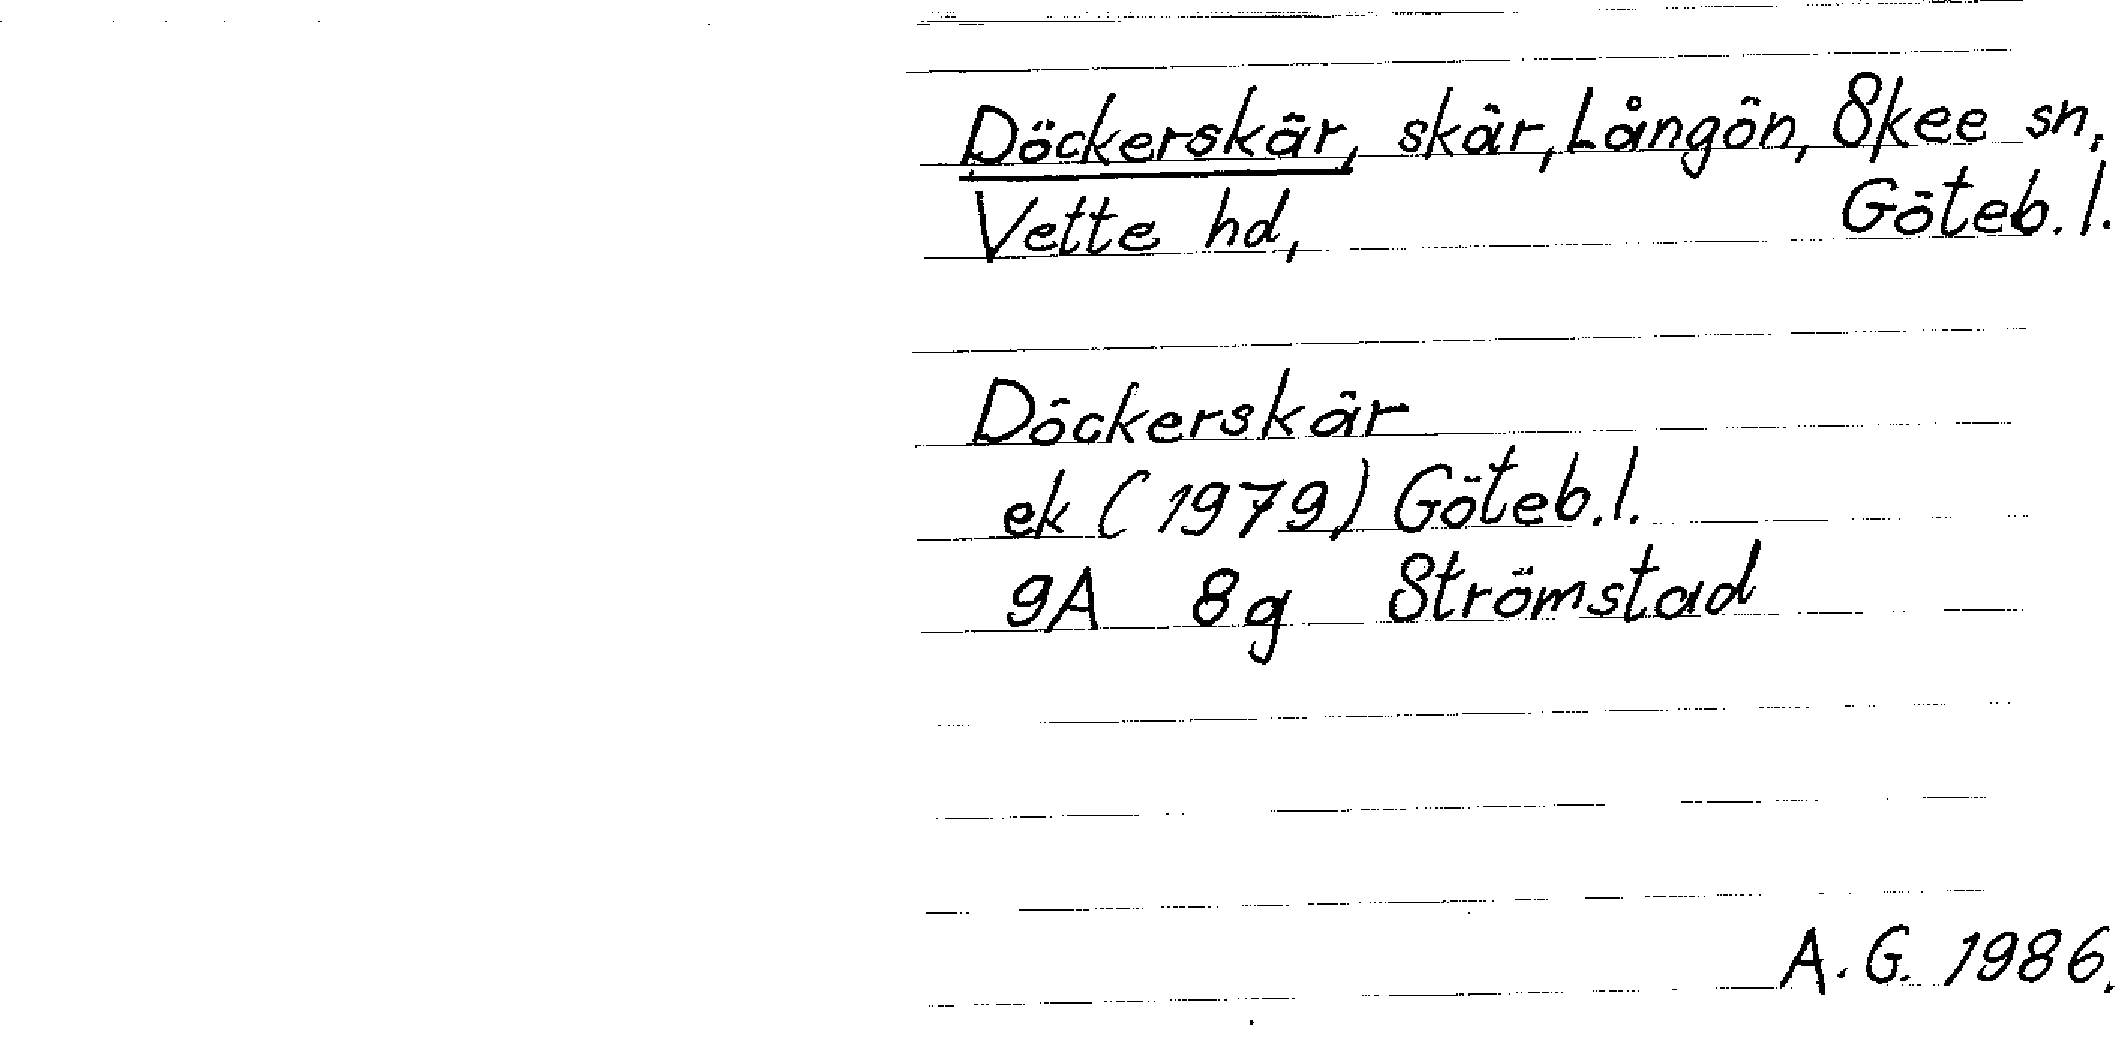 Döckerskär, skär, Långön, Skee sn,
Vette hd, Göteb. l.
Döckerskär
ek (1979) Göteb. l.
9A 8g Strömstad
A. G. 1986.